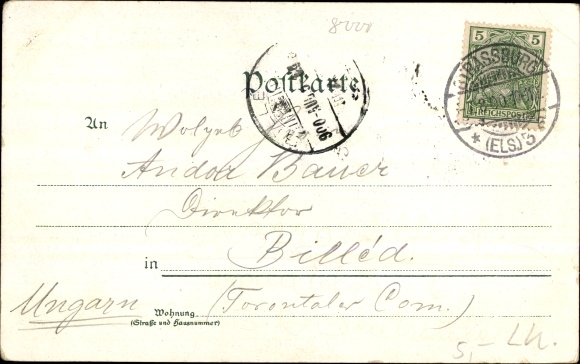 8000
5
REICHSPOST
STRASSBURG
* (ELS) 3
Postkarte
An
Bauer
Direktor
in Billéd.
Ungarn
(Torontaler Com.)
Wohnung
(Straße und Hausnummer)
5,- LH.